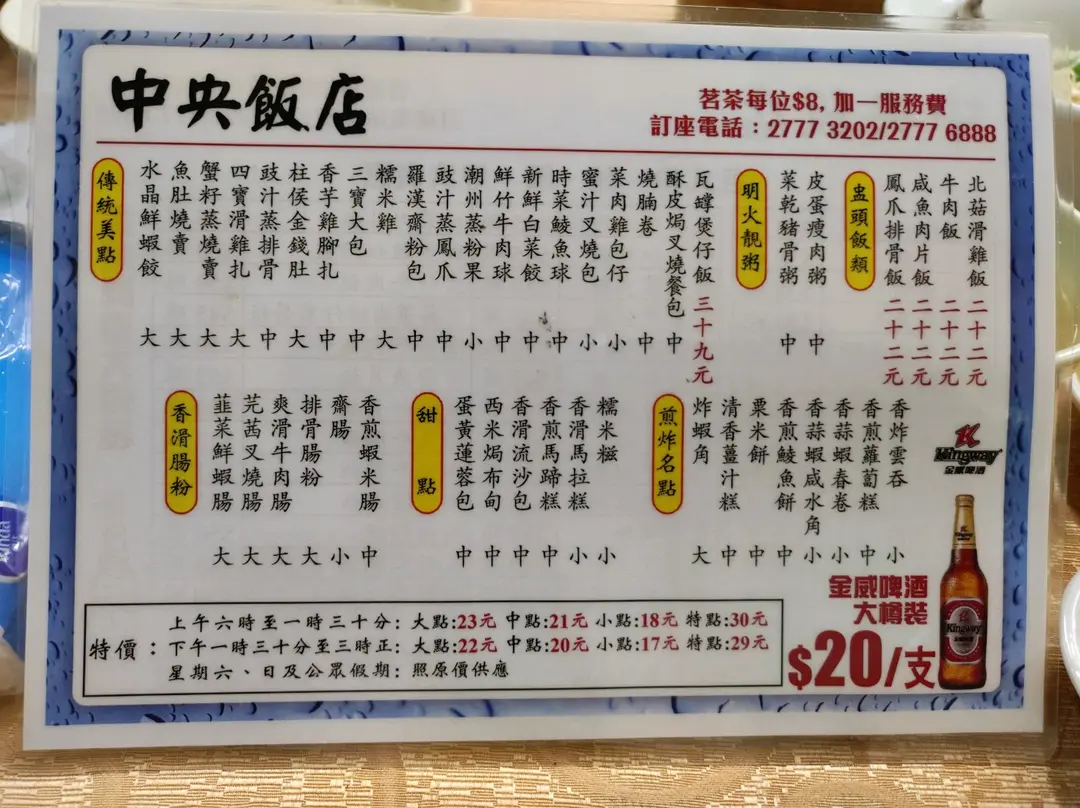 中央飯店
茗茶每位$8, 加一服務費
訂座電話：2777 3202/2777 6888
傳統美點
水晶鮮蝦餃 大
魚肚燒賣 大
蟹籽蒸燒賣 大
四寶滑雞扎 大
豉汁蒸排骨 中
柱侯金錢肚 大
香芋雞腳扎 中
三寶大包 中
糯米雞 大
羅漢齋粉包 中
豉汁蒸鳳爪 中
潮州蒸粉果 小
鮮竹牛肉球 中
新鮮白菜餃 中
時菜鯪魚球 中
蜜汁叉燒包 小
菜肉雞包仔 小
燒腩卷 中
酥皮焗叉燒餐包 中
瓦罉煲仔飯 三十九元
明火靚粥
菜乾豬骨粥 中
皮蛋瘦肉粥 中
盅頭飯類
鳳爪排骨飯 二十二元
咸魚肉片飯 二十二元
牛肉飯 二十二元
北菇滑雞飯 二十二元
香滑腸粉
韮菜鮮蝦腸 大
芫茜叉燒腸 大
爽滑牛肉腸 大
排骨腸粉 大
齋腸 小
香煎蝦米腸 中
甜點
蛋黃蓮蓉包 中
西米焗布甸 中
香滑流沙包 中
香煎馬蹄糕 中
香滑馬拉糕 小
糯米糍 小
煎炸名點
炸蝦角 大
清香薑汁糕 中
粟米餅 中
香煎鯪魚餅 中
香蒜蝦咸水角 小
香蒜蝦春卷 小
香煎蘿蔔糕 中
香炸雲吞 小
Kingway
金威啤酒
金威啤酒
大樽裝
$20/支
Kingway
特價：
上午六時至一時三十分: 大點:23元 中點:21元 小點:18元 特點:30元
下午一時三十分至三時正: 大點:22元 中點:20元 小點:17元 特點:29元
星期六、日及公眾假期: 照原價供應